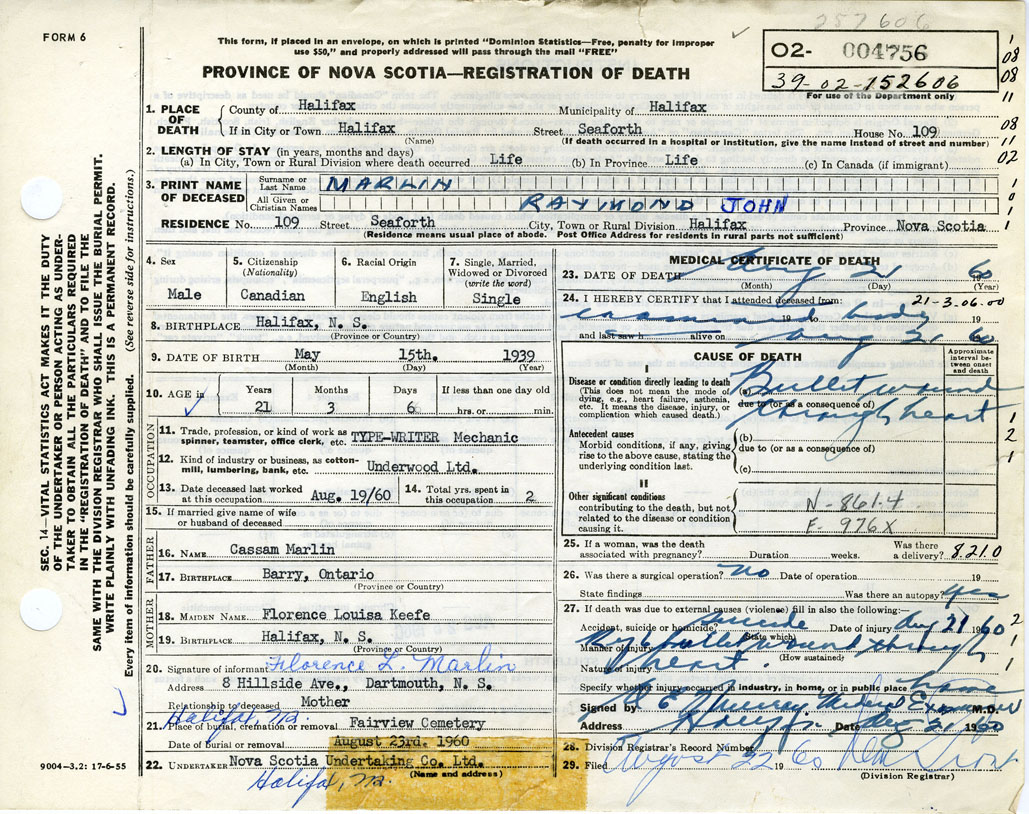 257606
FORM 6
This form, if placed in an envelope, on which is printed "Dominion Statistics—Free, penalty for improper
use $50," and properly addressed will pass through the mail "FREE"
PROVINCE OF NOVA SCOTIA—REGISTRATION OF DEATH
02- 004756
39-02-152606
For use of the Department only
1. PLACE OF DEATH
County of Halifax Municipality of Halifax
If in City or Town Halifax Street Seaforth House No. 109)
(Name) (If death occurred in a hospital or institution, give the name instead of street and number)
2. LENGTH OF STAY (in years, months and days)
(a) In City, Town or Rural Division where death occurred Life (b) In Province Life (c) In Canada (if immigrant)
3. PRINT NAME OF DECEASED
Surname or Last Name MARLIN
All Given or Christian Names RAYMOND JOHN
RESIDENCE No. 109 Street Seaforth City, Town or Rural Division Halifax Province Nova Scotia
(Residence means usual place of abode. Post Office Address for residents in rural parts not sufficient)
4. Sex
Male
5. Citizenship
(Nationality)
Canadian
6. Racial Origin
English
7. Single, Married,
Widowed or Divorced
(write the word)
Single
8. BIRTHPLACE Halifax, N. S.
(Province or Country)
9. DATE OF BIRTH May 15th. 1939
(Month) (Day) (Year)
10. AGE in
Years Months Days If less than one day old
21 3 6 hrs. or min.
OCCUPATION
11. Trade, profession, or kind of work as
spinner, teamster, office clerk, etc. TYPE-WRITER Mechanic
12. Kind of industry or business, as cotton-
mill, lumbering, bank, etc. Underwood Ltd.
13. Date deceased last worked
at this occupation Aug. 19/60
14. Total yrs. spent in
this occupation 2
15. If married give name of wife
or husband of deceased
FATHER
16. NAME Cassam Marlin
17. BIRTHPLACE Barry, Ontario
(Province or Country)
MOTHER
18. MAIDEN NAME Florence Louisa Keefe
19. BIRTHPLACE Halifax, N. S.
(Province or Country)
20. Signature of informant Florence L. Marlin
Address 8 Hillside Ave., Dartmouth, N. S.
Relationship to deceased Mother
Halifax, N.S.
21. Place of burial, cremation or removal Fairview Cemetery
Date of burial or removal August 23rd. 1960
22. UNDERTAKER Nova Scotia Undertaking Co. Ltd.
(Name and address)
Halifax, N.S.
9004-3.2: 17-6-55
MEDICAL CERTIFICATE OF DEATH
23. DATE OF DEATH Aug 21 60
(Month) (Day) (Year)
24. I HEREBY CERTIFY that I attended deceased from: 21-3.06.00
examined 19 to body 19
and last saw h alive on Aug 21 60
CAUSE OF DEATH
Approximate
interval be-
tween onset
and death
I
Disease or condition directly leading to death
(This does not mean the mode of
dying, e.g., heart failure, asthenia,
etc. It means the disease, injury, or
complication which caused death.)
(a) Bullet wound
due to (or as a consequence of)
through heart
Antecedent causes
Morbid conditions, if any, giving
rise to the above cause, stating the
underlying condition last.
(b)
due to (or as a consequence of)
(c)
II
Other significant conditions
contributing to the death, but not
related to the disease or condition
causing it.
N-861.4
E-976X
25. If a woman, was the death
associated with pregnancy? Duration weeks. Was there
a delivery? 8.210
26. Was there a surgical operation? No Date of operation 19
State findings Was there an autopsy? Yes
27. If death was due to external causes (violence) fill in also the following:—
Accident, suicide or homicide? Suicide Date of injury Aug 21 1960
(State which)
Manner of injury wound through
(How sustained)
Nature of injury heart.
Specify whether injury occurred in industry, in home, or in public place home
Signed by Murray Medical Examiner M.D.
Address Date Aug 21 1960
28. Division Registrar's Record Number
29. Filed August 22 1960
(Division Registrar)
SEC. 14—VITAL STATISTICS ACT MAKES IT THE DUTY
OF THE UNDERTAKER OR PERSON ACTING AS UNDER-
TAKER TO OBTAIN ALL THE PARTICULARS REQUIRED
IN THE "REGISTRATION OF DEATH" AND TO FILE THE
SAME WITH THE DIVISION REGISTRAR WHO SHALL ISSUE THE BURIAL PERMIT.
WRITE PLAINLY WITH UNFADING INK. THIS IS A PERMANENT RECORD.
Every item of information should be carefully supplied. (See reverse side for instructions.)